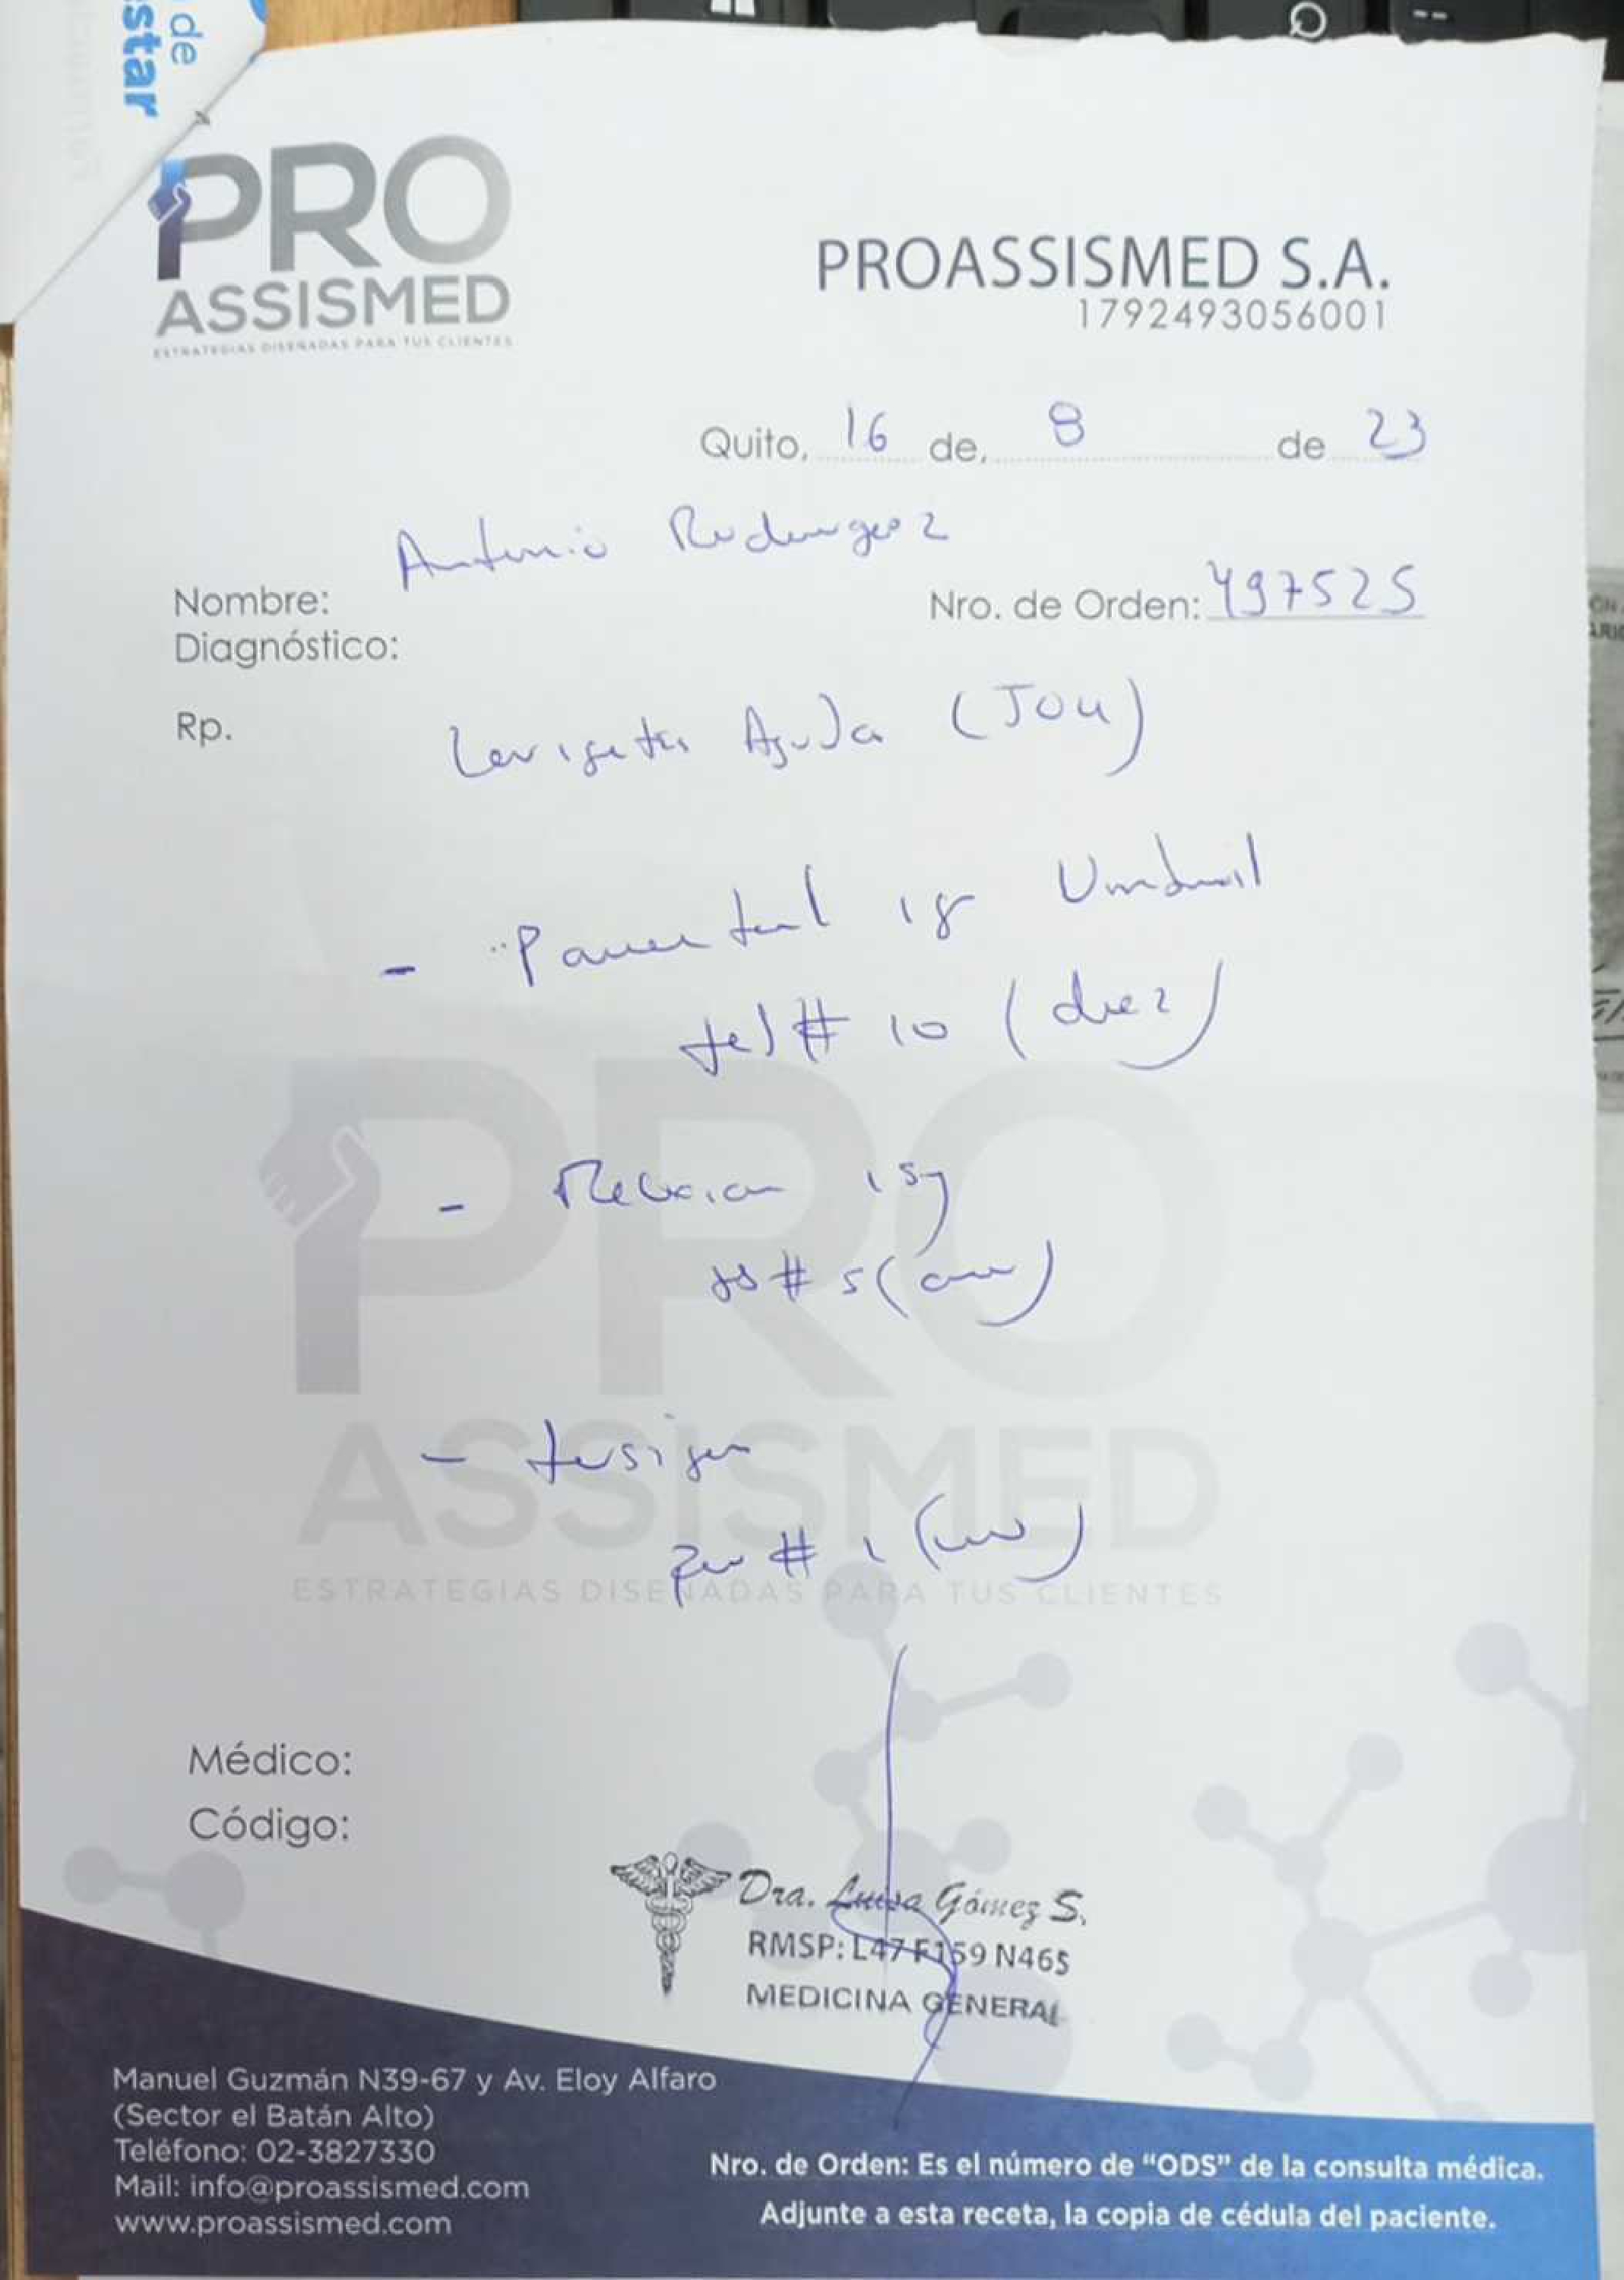 de
estar
PRO
ASSISMED
ESTRATEGIAS DISEÑADAS PARA TUS CLIENTES
PROASSISMED S.A.
1792493056001
Quito, 16 de, 8 de 23
Antonio
Nombre:
Nro. de Orden: 497525
Diagnóstico:
Rp.
Aguda (J04)
- 1g
# 10 (diez)
- 15
# 5 (
-
# 1 (
PRO
ASSISMED
ESTRATEGIAS DISEÑADAS PARA TUS CLIENTES
Médico:
Código:
Dra. Luisa Gómez S.
RMSP: L47 F159 N465
MEDICINA GENERAL
Manuel Guzmán N39-67 y Av. Eloy Alfaro
(Sector el Batán Alto)
Teléfono: 02-3827330
Mail: info@proassismed.com
www.proassismed.com
Nro. de Orden: Es el número de “ODS” de la consulta médica.
Adjunte a esta receta, la copia de cédula del paciente.